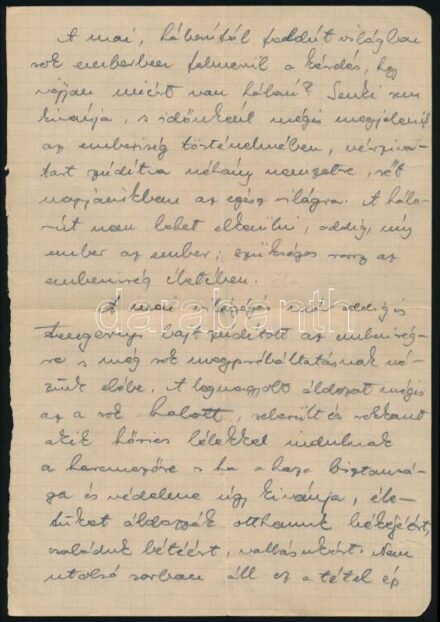 A mai, háborútól feldúlt világban
sok emberben felmerül a kérdés, hogy
vajjon miért van háború? Senki sem
kivánja, s időnként mégis megjelenik
az emberiség történelmében, vérziva-
tart zúdítva néhány nemzetre, sőt
napjainkban az egész világra. A hábo-
rút nem lehet elkerülni, addig, míg
ember az ember; szükséges rossz az
emberiség életében.
A mai világégés már eddig is
tengernyi bajt zúdított az emberiség-
re s még sok megpróbáltatásnak né-
zünk elébe. A legnagyobb áldozat mégis
az a sok halott, sebesült és rokkant
akik hősies lélekkel indulnak
a harcmezőre s ha a haza biztonsá-
ga és védelme úgy kivánja, éle-
tüket áldozzák otthonuk békéjéért,
családuk létéért, vallásukért. Nem
utolsó sorban áll ez a tétel ép
darabanth